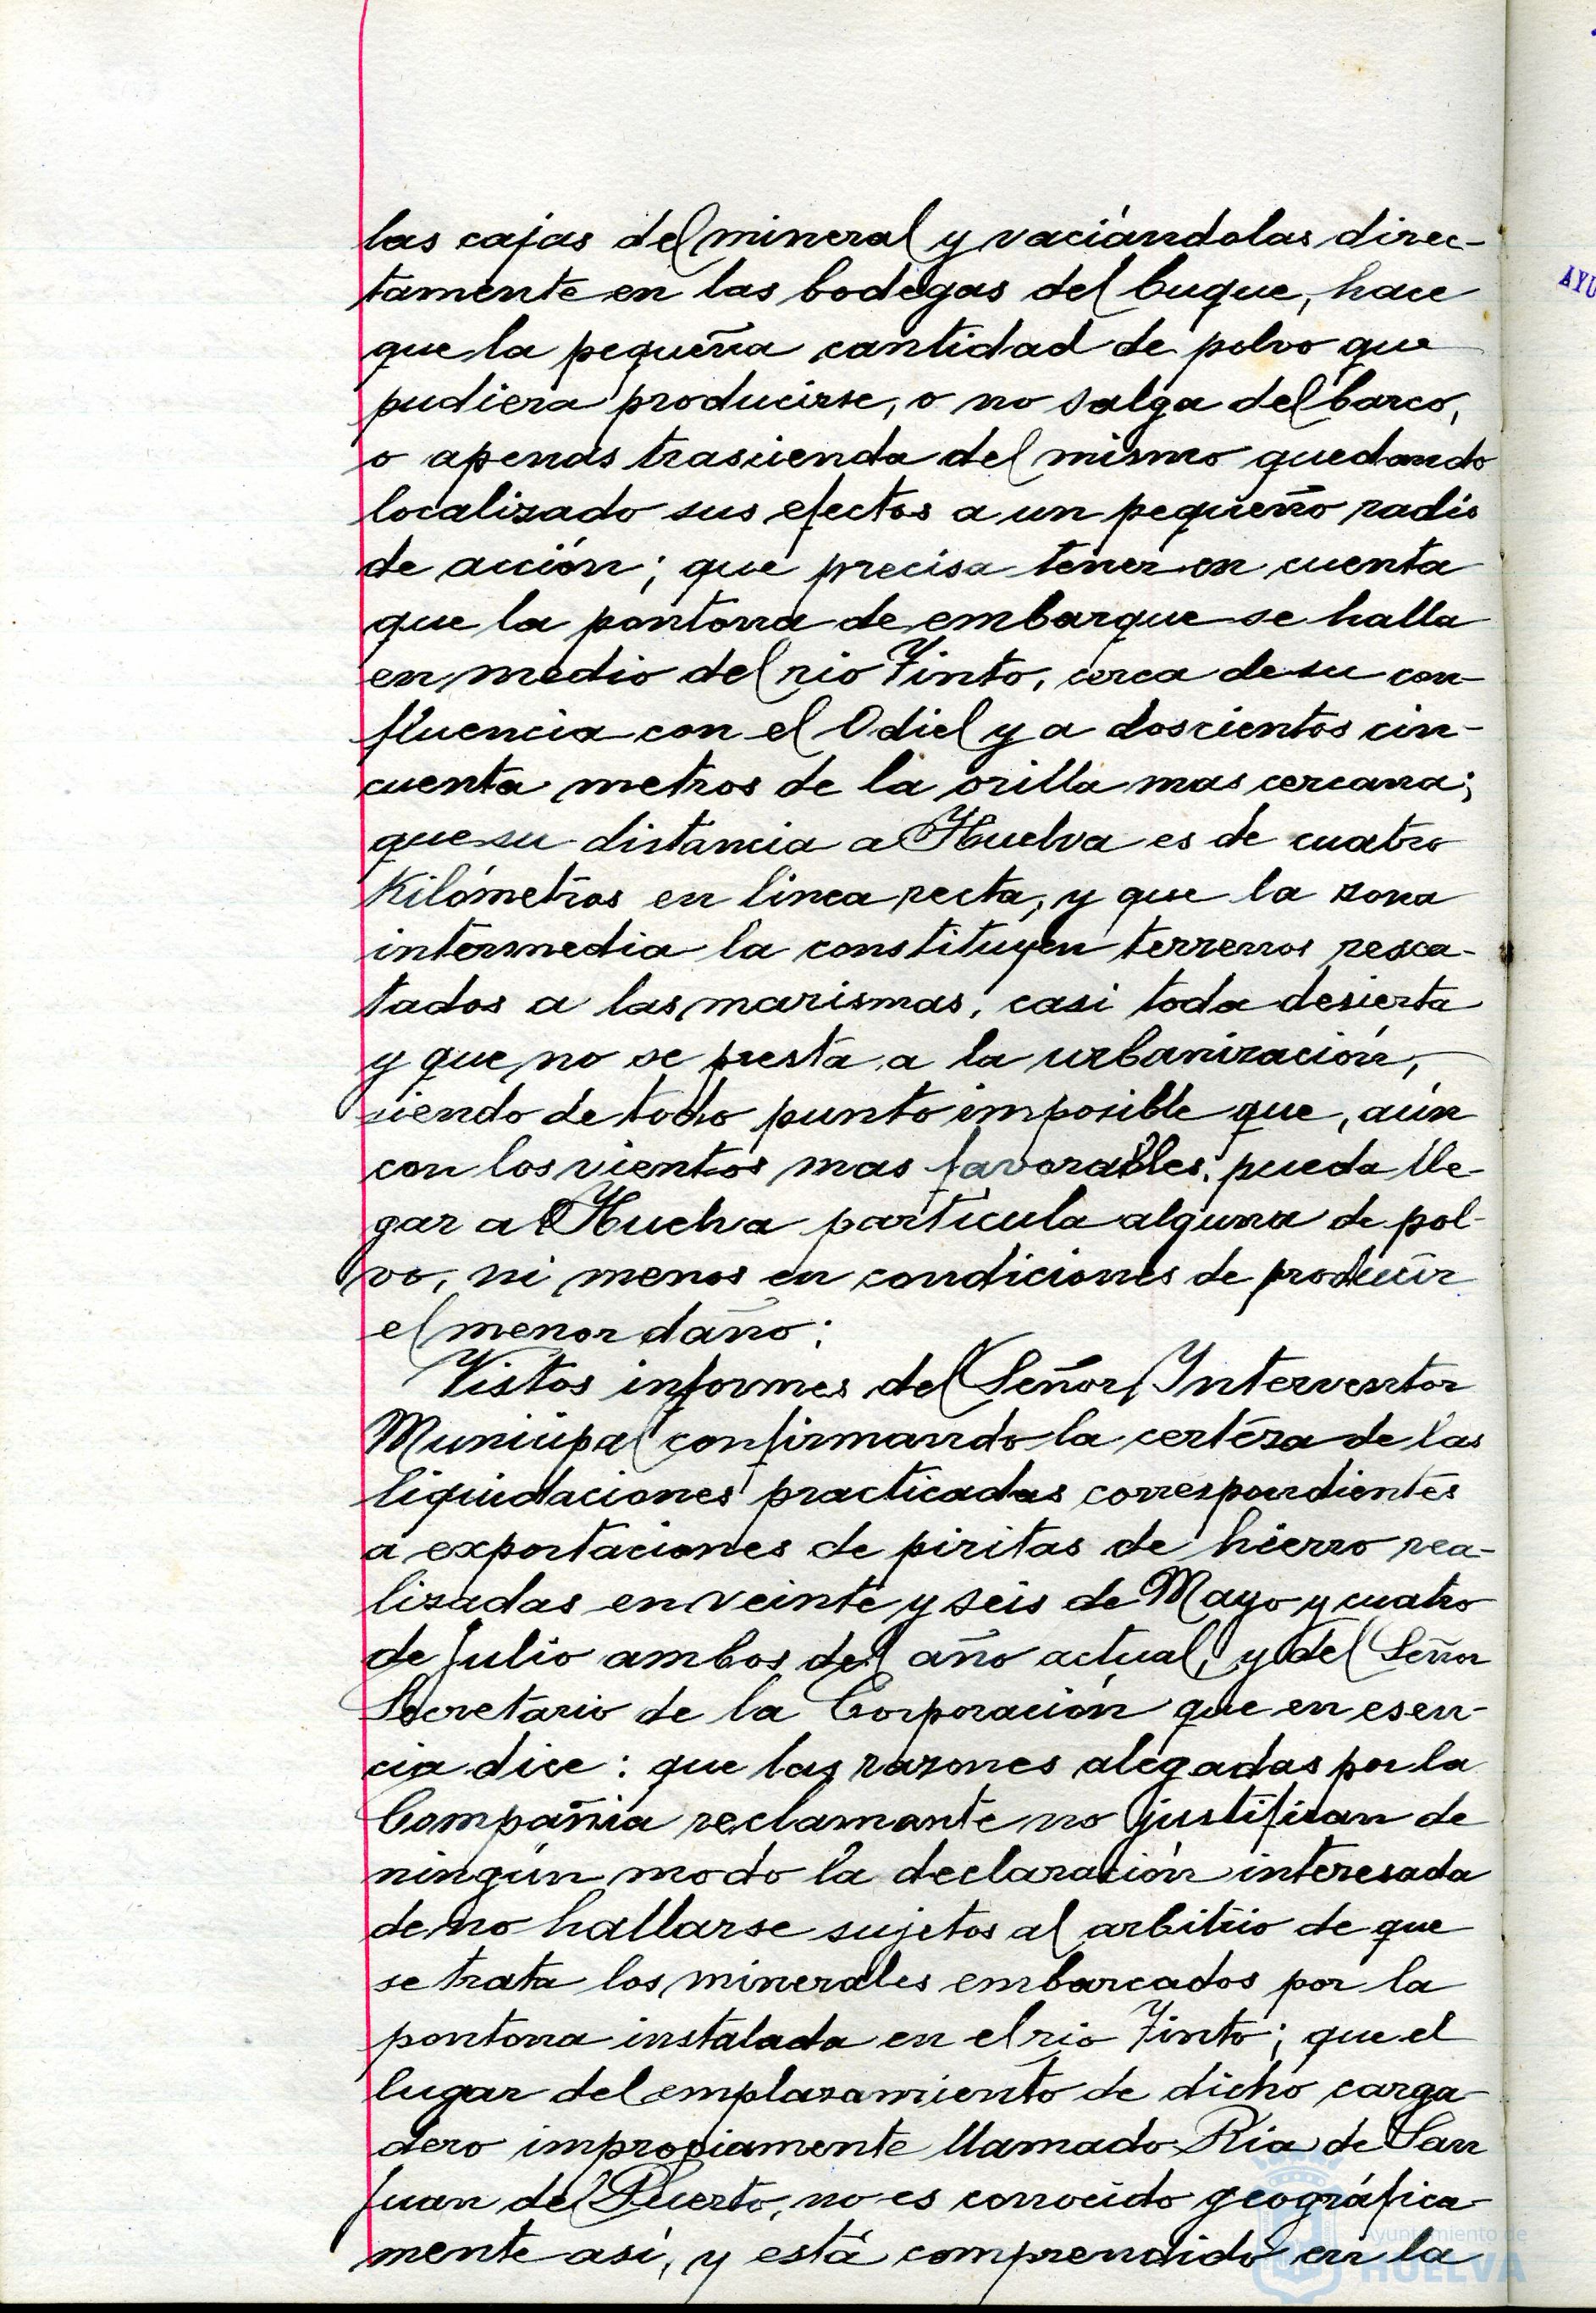 las cajas del mineral y vaciándolas direc-
tamente en las bodegas del buque, hace
que la pequeña cantidad de polvo que
pudiera producirse, o no salga del barco,
o apenas trascienda del mismo quedando
localizado sus efectos a un pequeño radio
de acción; que precisa tener en cuenta
que la pontona de embarque se halla
en medio del rio Tinto, cerca de su con-
fluencia con el Odiel y a doscientos cin-
cuenta metros de la orilla mas cercana;
que su distancia a Huelva es de cuatro
Kilómetros en linea recta, y que la zona
intermedia la constituyen terrenos resca-
tados a las marismas, casi toda desierta
y que no se presta a la urbanización,
siendo de todo punto imposible que, aún
con los vientos mas favorables, pueda lle-
gar a Huelva particula alguna de pol-
vo, ni menos en condiciones de producir
el menor daño;
Vistos informes del Señor Interventor
Municipal confirmando la certeza de las
liquidaciones practicadas correspondientes
a exportaciones de piritas de hierro rea-
lizadas en veinte y seis de Mayo y cuatro
de Julio ambos del año actual, y del Señor
Secretario de la Corporación que en esen-
cia dice: que las razones alegadas por la
Compañia reclamante no justifican de
ningún modo la declaración interesada
de no hallarse sujetos al arbitrio de que
se trata los minerales embarcados por la
pontona instalada en el rio Tinto; que el
lugar del emplazamiento de dicho carga-
dero impropiamente llamado Ria de San
Juan del Puerto, no es conocido geográfica-
mente asi, y está comprendido en la
AYU
Ayuntamiento de
HUELVA